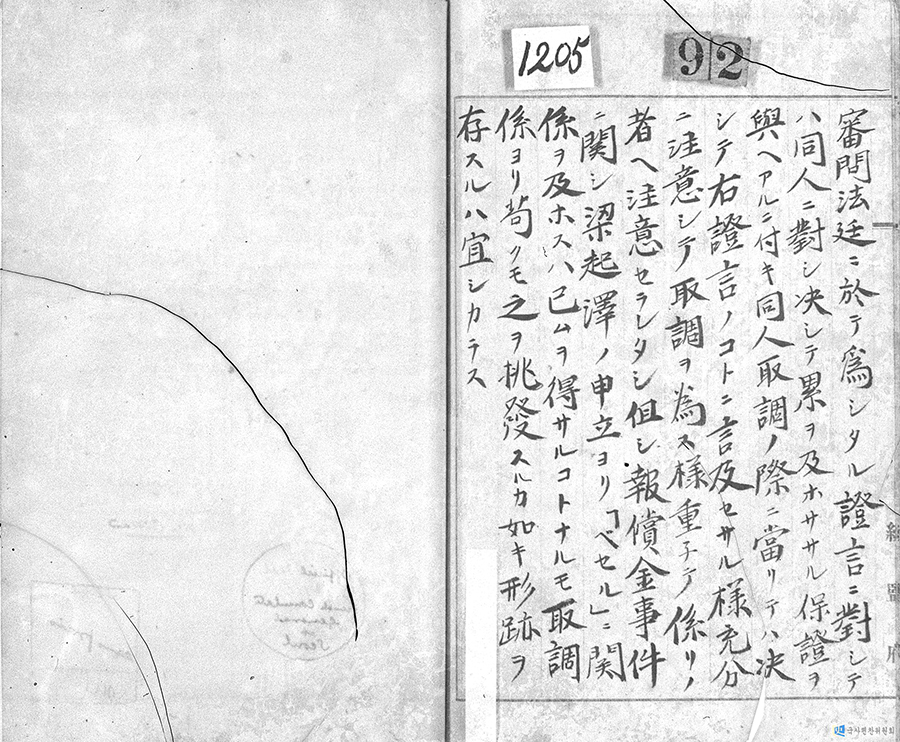 1205
92
審問法廷ニ於テ爲シタル證言ニ對シテ
ハ同人ニ對シ决シテ累ヲ及ホササル保證ヲ
與ヘアルニ付キ同人取調ノ際ニ當リテハ决
シテ右證言ノコトニ言及セサル樣充分
ニ注意シテ取調ヲ為ス樣重子テ係リノ
者ヘ注意セラレタシ但シ報償金事件
ニ関シ梁起澤ノ申立ヨリ「ベセル」ニ関
係ヲ及ホスハ已ムヲ得サルコトナルモ取調
係ヨリ苟クモ之ヲ挑發スルカ如キ形跡ヲ
存スルハ宜シカラス
統監府
Seoul
국사편찬위원회